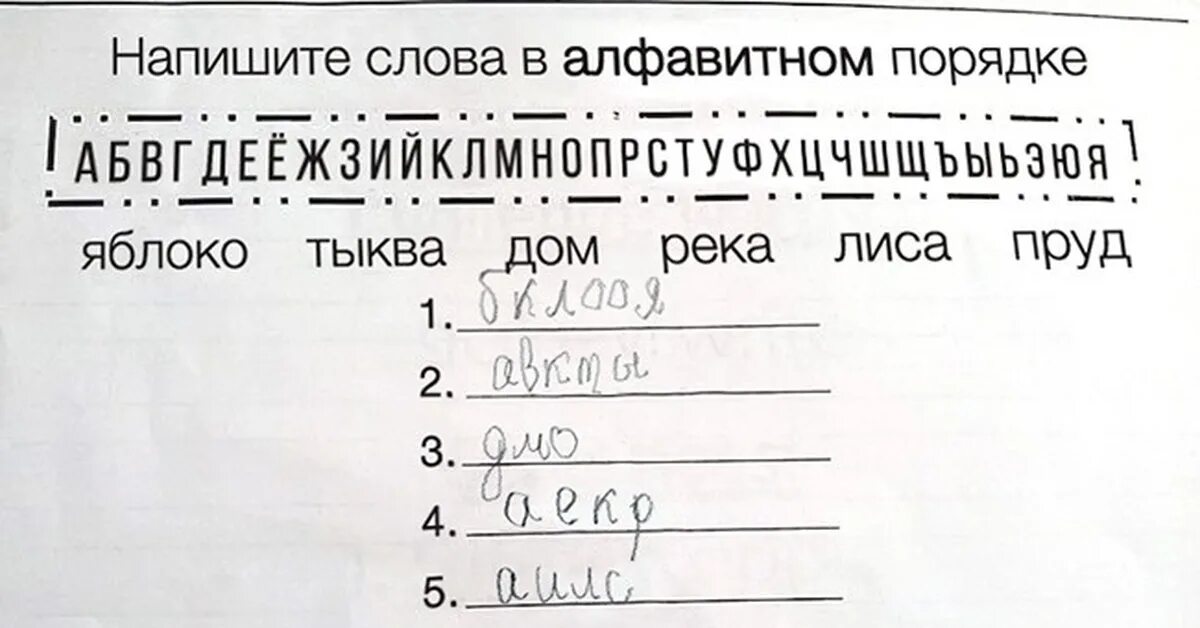 Напишите слова в алфавитном порядке
АБВГДЕЁЖЗИЙКЛМНОПРСТУФХЦЧШЩЪЫЬЭЮЯ
яблоко тыква дом река лиса пруд
1. бклооя
2. авкты
3. дмо
4. аекр
5. аилс